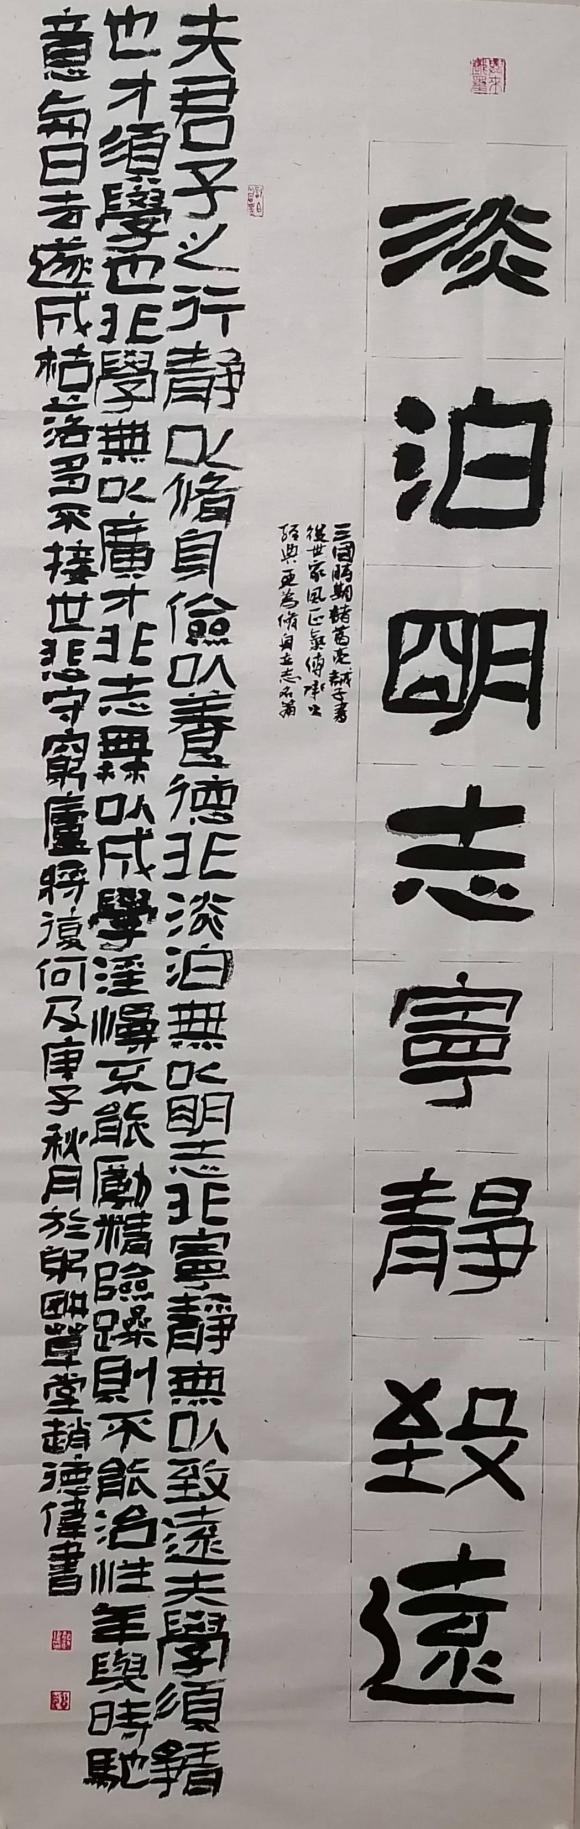 淡泊明志寧靜致遠
三国時期諸葛亮誡子書
從世家風正氣傳承之
經典更為脩身立志名篇
夫君子之行靜以脩身儉以養德非淡泊無以明志非寧靜無以致遠夫學須靜
也才須學也非學無以廣才非志無以成學淫慢不能勵精險躁則不能治性年與時馳
意與日去遂成枯落多不接世悲守窮廬將復何及庚子秋月於躬耕草堂趙德偉書